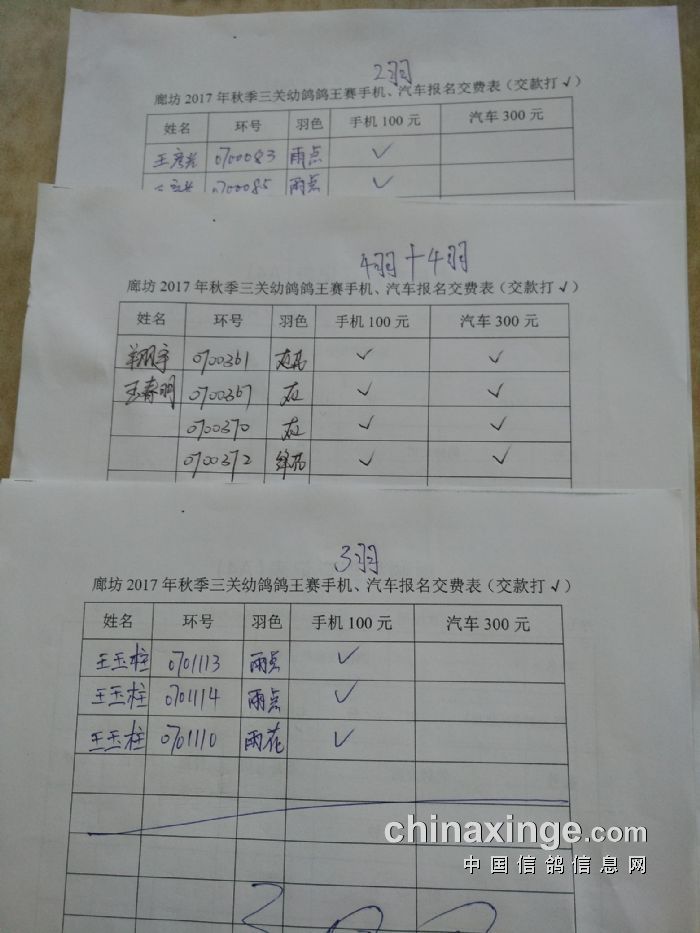 2羽
廊坊 2017 年秋季三关幼鸽鸽王赛手机、汽车报名交费表（交款打 √）
姓名 环号 羽色 手机 100 元 汽车 300 元
0700083 雨点 ✓
0700085 雨点 ✓
4羽+4羽
廊坊 2017 年秋季三关幼鸽鸽王赛手机、汽车报名交费表（交款打 √）
姓名 环号 羽色 手机 100 元 汽车 300 元
翔宇 0700361 ✓ ✓
王春明 0700367 灰 ✓ ✓
0700370 灰 ✓ ✓
0700372 绛花 ✓ ✓
3羽
廊坊 2017 年秋季三关幼鸽鸽王赛手机、汽车报名交费表（交款打 √）
姓名 环号 羽色 手机 100 元 汽车 300 元
王玉柱 0701113 雨点 ✓
王玉柱 0701114 雨点 ✓
王玉柱 0701110 雨花 ✓
chinaxinge.com
中国信鸽信息网